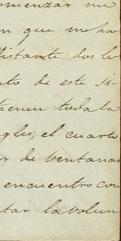 omenzar me
n que me ha
distante dos le
nto de este si
tienen toda la
gles, el cuarto
r de ventanas
encuentro con
tar la volun